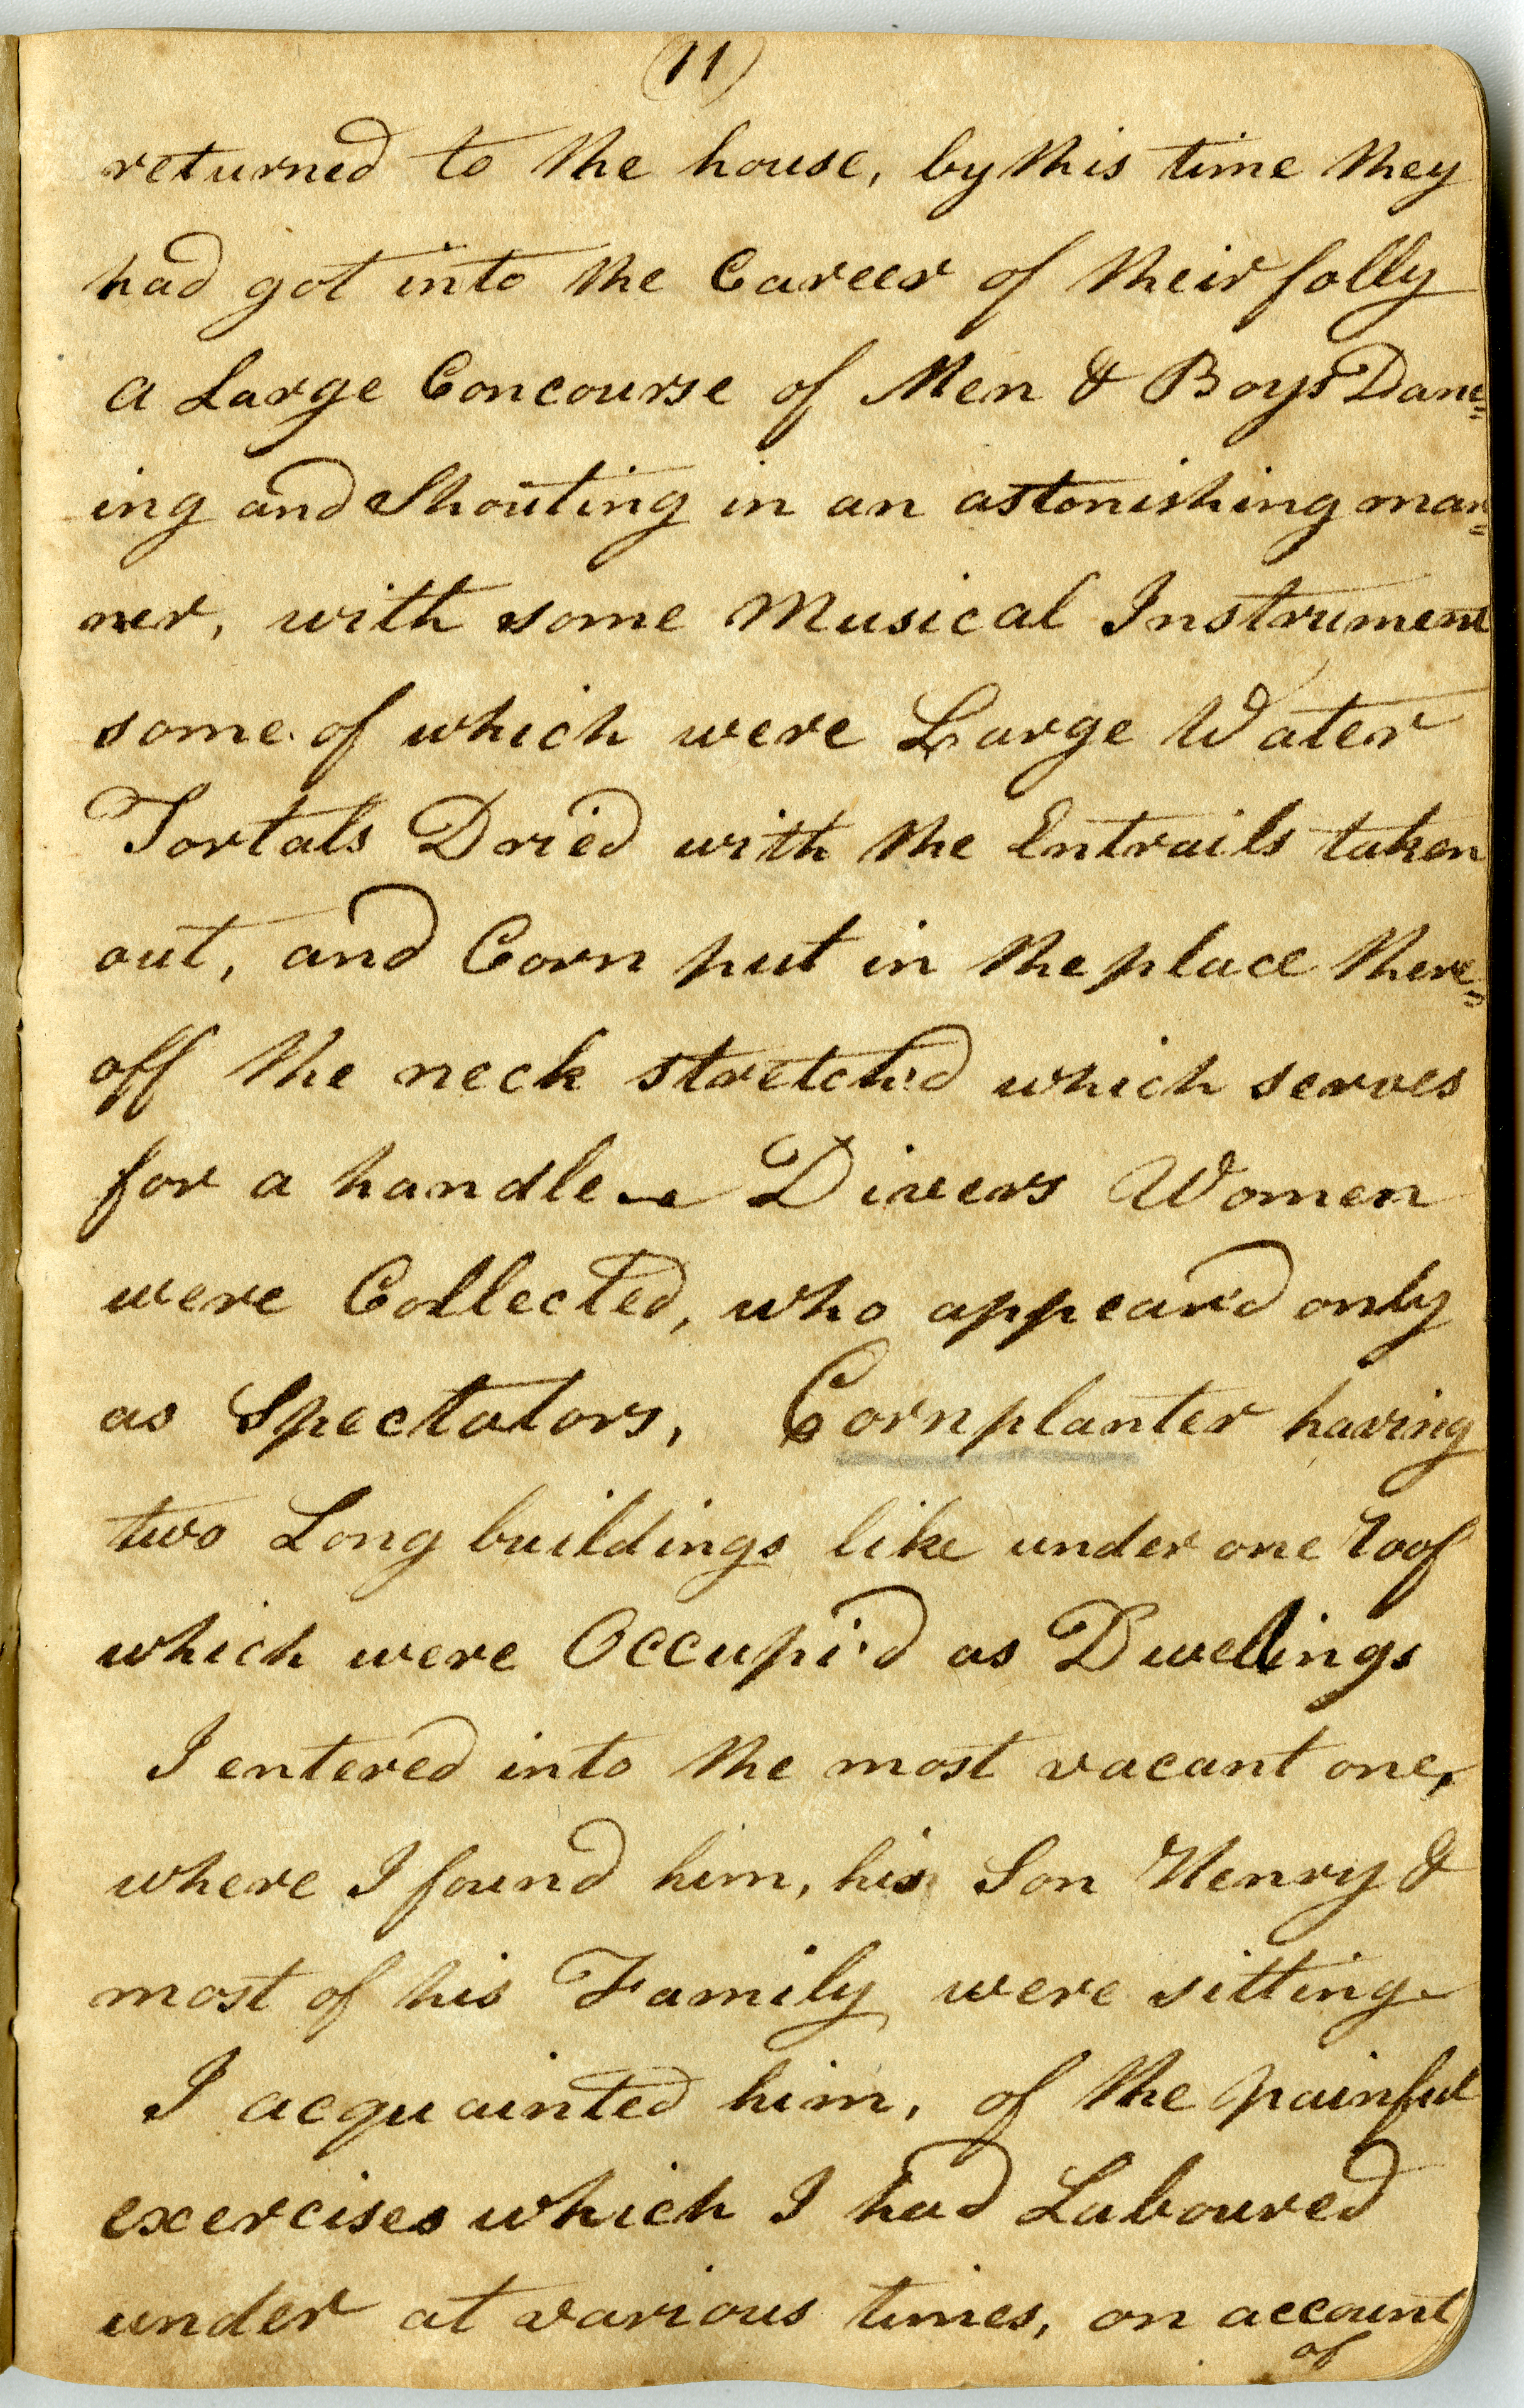 (11)
returned to the house, by this time they
had got into the Career of their folly
a Large Concourse of Men & Boys Danc=
ing and Shouting in an astonishing man=
ner, with some Musical Instrument
some of which were Large Water
Tortals Dried with the Entrails taken
out, and Corn put in the place there=
off the neck stretch'd which serves
for a handle — Divers Women
were Collected, who appear'd only
as Spectators, Cornplanter having
two Long buildings like under one roof
which were Occupi'd as Dwellings
I entered into the most vacant one,
where I found him, his Son Henry &
most of his Family were sitting
I acquainted him, of the painful
exercises which I had Laboured
under at various times, on account
of